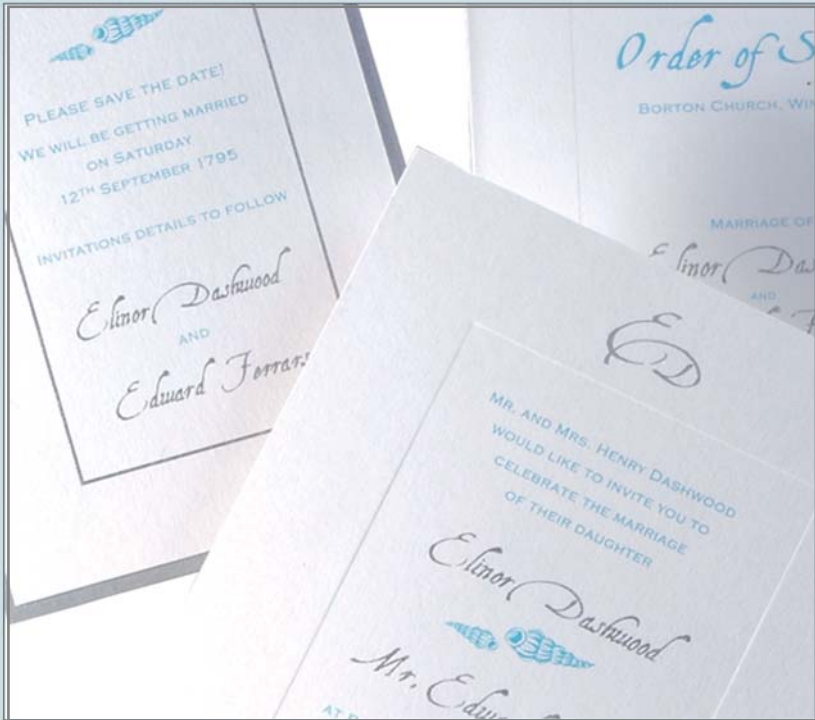 PLEASE SAVE THE DATE!
WE WILL BE GETTING MARRIED
ON SATURDAY
12TH SEPTEMBER 1795
INVITATIONS DETAILS TO FOLLOW
Elinor Dashwood
AND
Edward Ferrars
Order of S
BORTON CHURCH, WIN
MARRIAGE OF
Elinor Das
AND
ED
MR. AND MRS. HENRY DASHWOOD
WOULD LIKE TO INVITE YOU TO
CELEBRATE THE MARRIAGE
OF THEIR DAUGHTER
Elinor Dashwood
Mr. Edw
AT